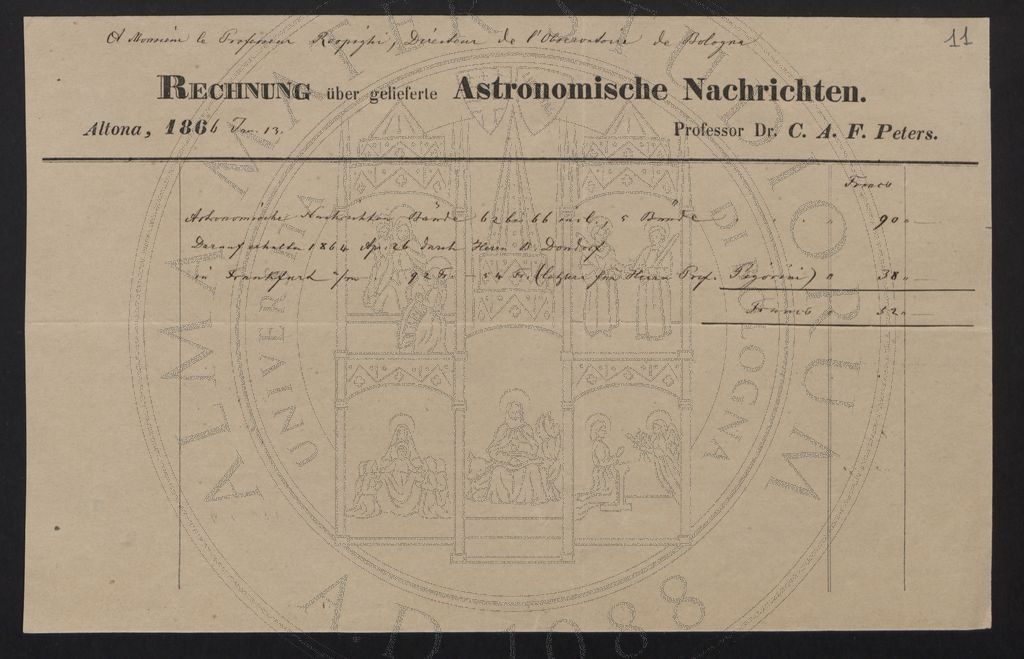 A Monsieur le Professeur Respighi, Directeur de l'Observatoire de Bologna
11
RECHNUNG über gelieferte Astronomische Nachrichten.
Altona, 1866 Jan. 13.
Professor Dr. C. A. F. Peters.
Francs
Astronomische Nachrichten Bände 62 bis 66 incl, 5 Bände " " " " 90 "
Darauf erhalten 1864 Apr. 26 durch Herrn B. Dondorf
in Frankfurt a/m 92 Fr. – 54 Fr. (letztere für Herrn Prof. ) " 38 "
Francs " 52 "
ALMA MATER STUDIORUM
UNIVERSITÀ DI BOLOGNA
A.D. 1088